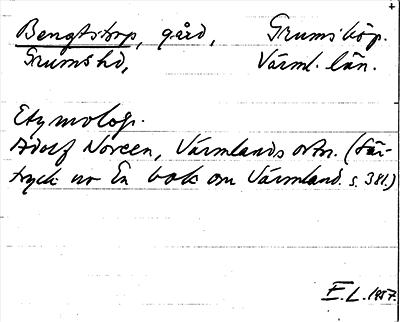 Bengtstorp, gård, Grums köp.
Grums hd, Värml. län.
Etymologi.
Adolf Noreen, Värmlands ortn. (Sär-
tryck ur En bok om Värmland. s. 381.)
E.L. 1957.